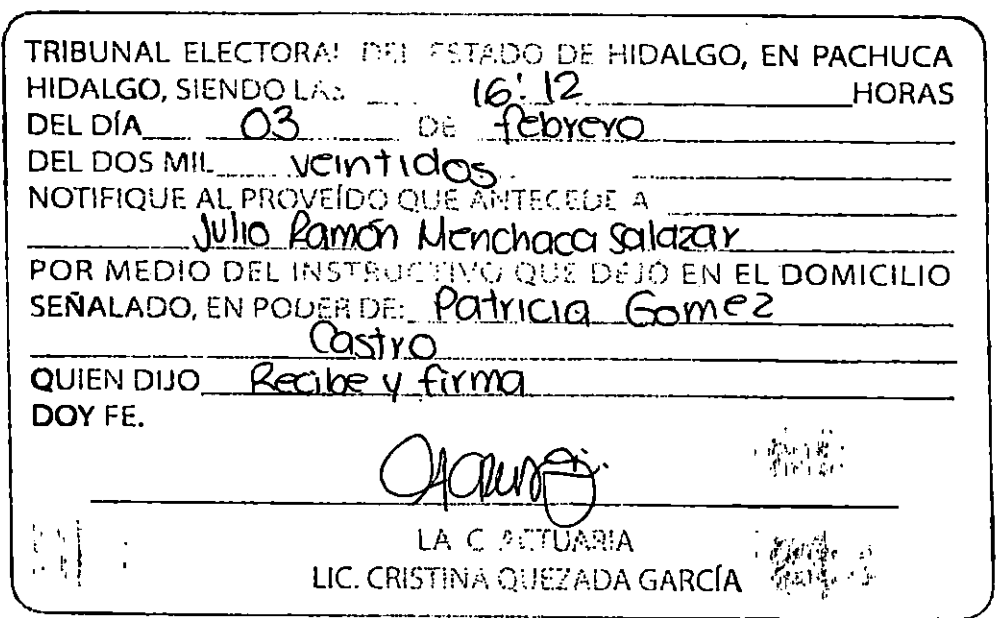 TRIBUNAL ELECTORAL DEL ESTADO DE HIDALGO, EN PACHUCA
HIDALGO, SIENDO LAS 16:12 HORAS
DEL DÍA 03 DE febrero
DEL DOS MIL veintidos
NOTIFIQUE AL PROVEÍDO QUE ANTECEDE A
Julio Ramón Menchaca Salazar
POR MEDIO DEL INSTRUCTIVO QUE DEJÓ EN EL DOMICILIO
SEÑALADO, EN PODER DE: Patricia Gomez
Castro
QUIEN DIJO Recibe y firma
DOY FE.
LA C ACTUARIA
LIC. CRISTINA QUEZADA GARCÍA